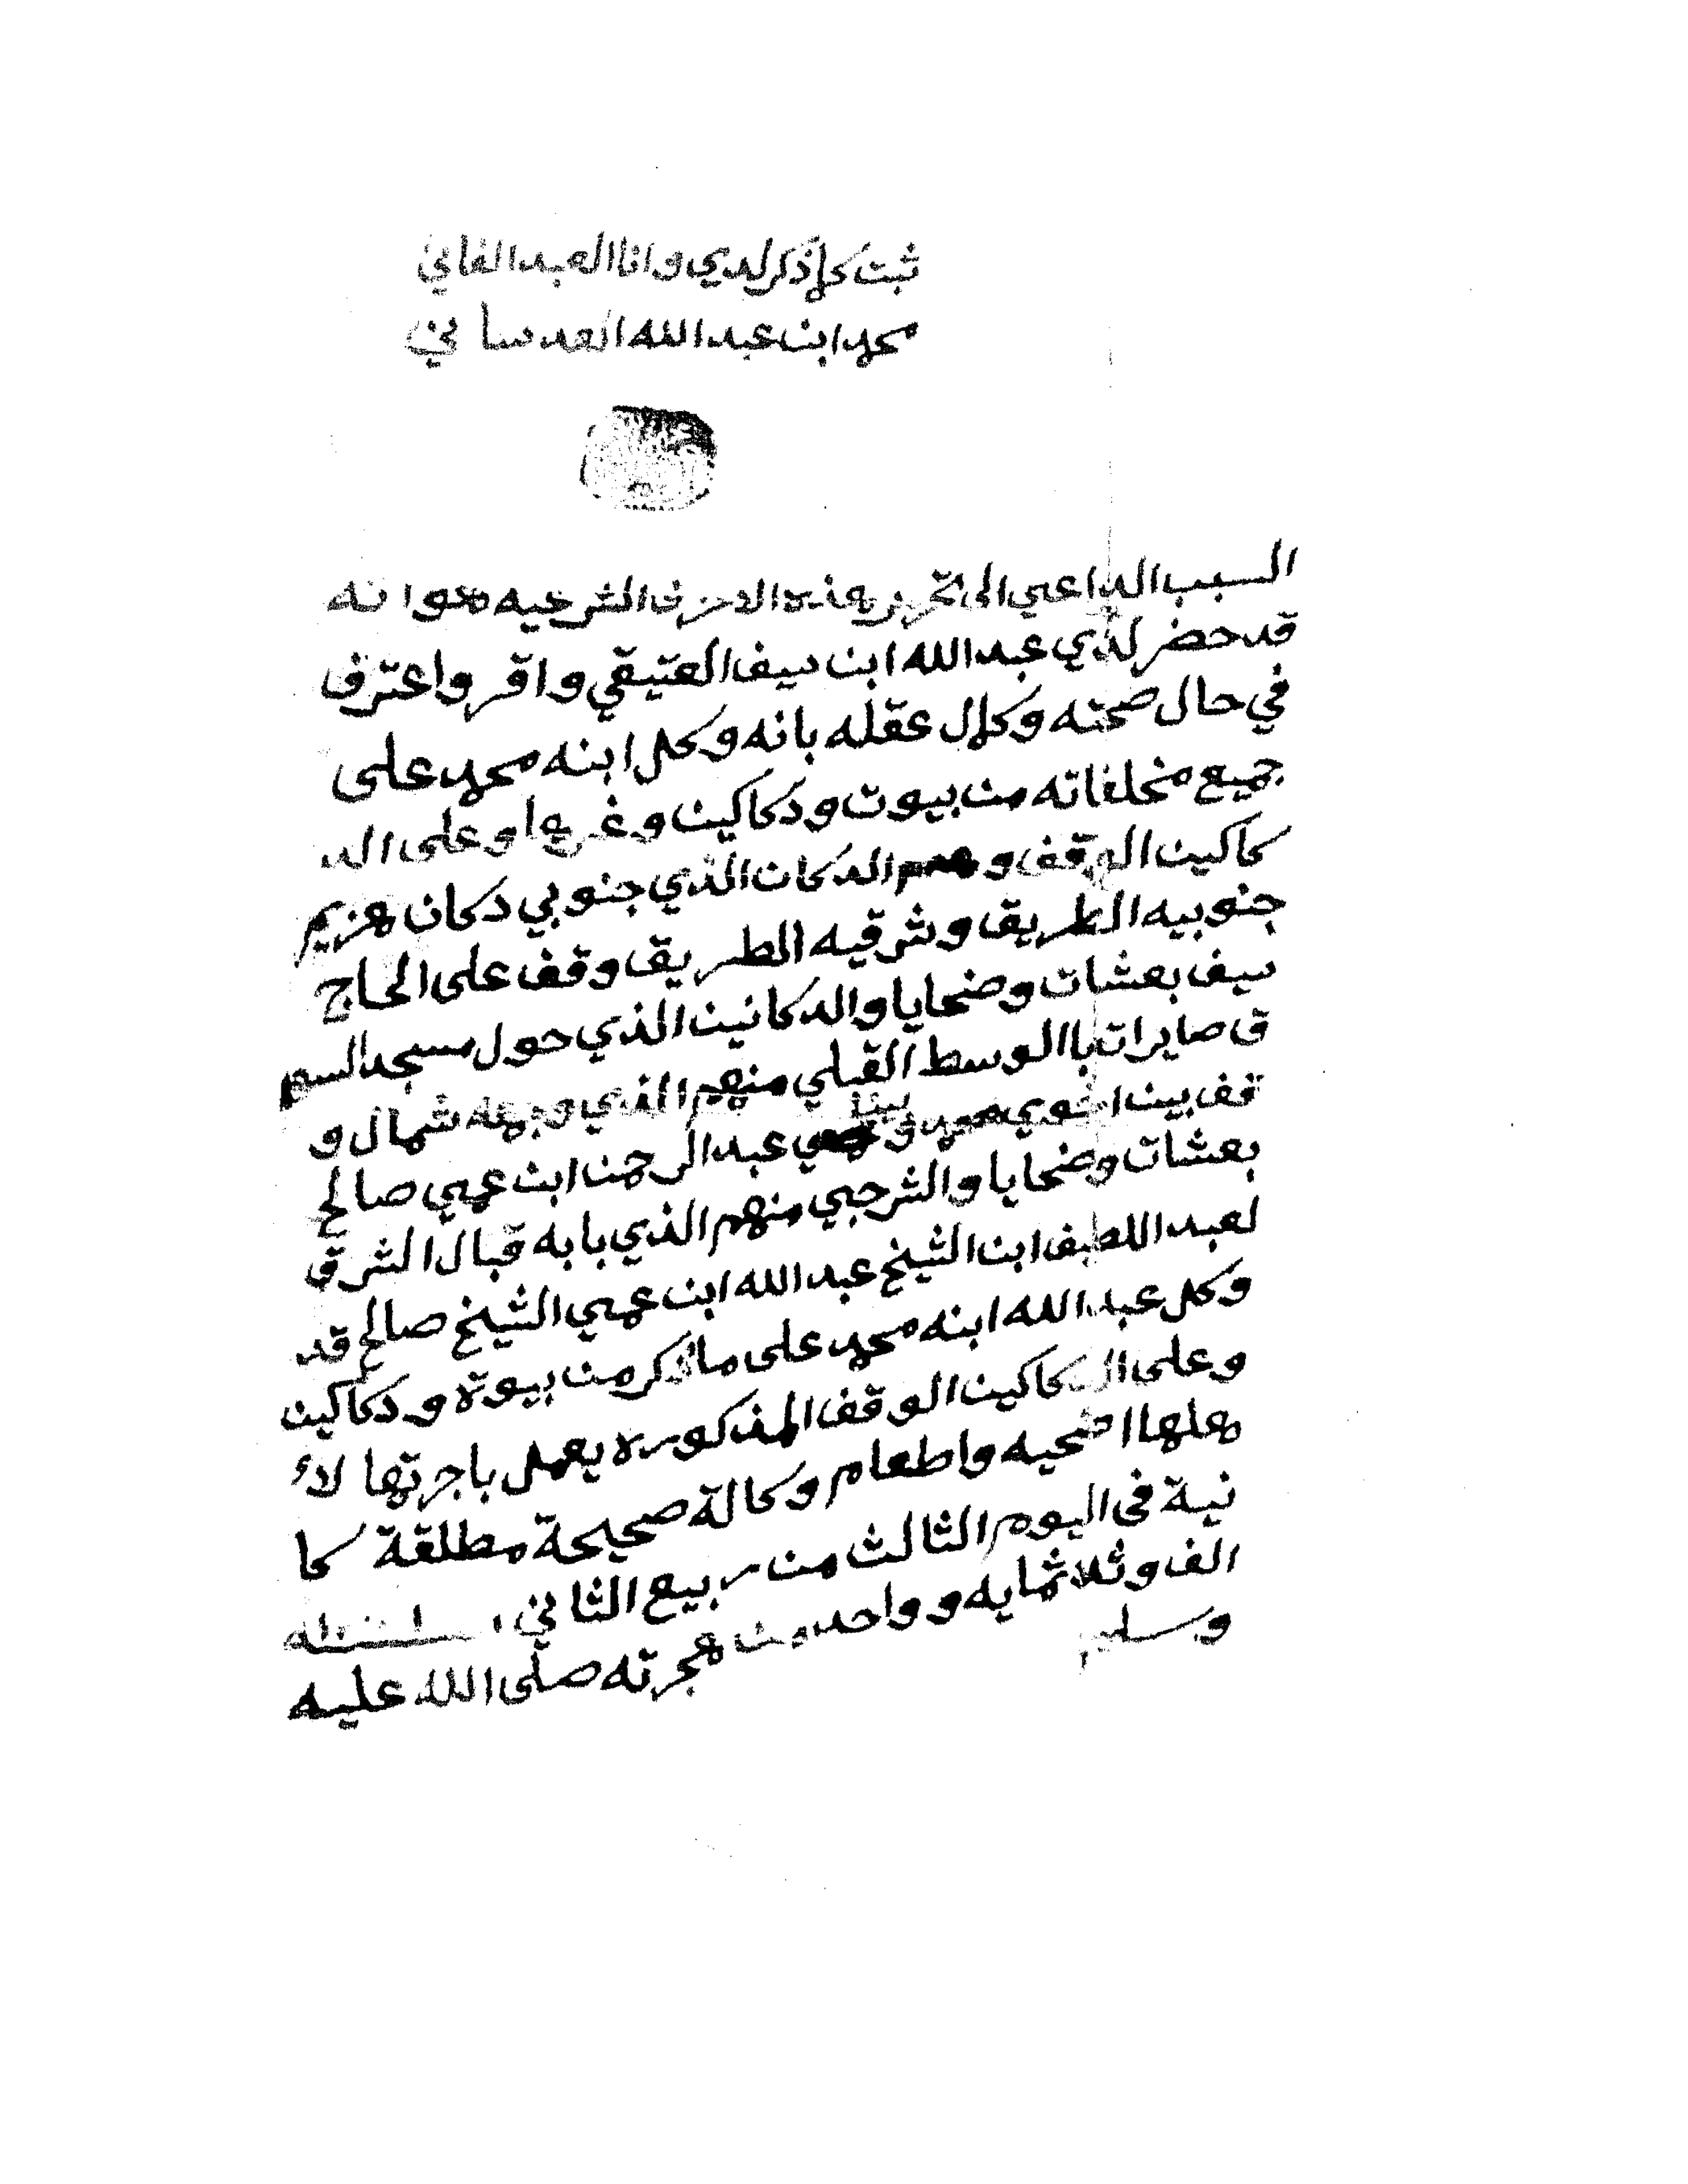 ثبت كما ذكر لدي وانا العبد الفاني
محمد ابن عبد الله العدساني
السبب الداعي الى تحرير هذه الاحرف الشرعيه هو انه
قد حضر لدي عبد الله ابن سيف العتيقي واقر واعترف
في حال صحته وكمال عقله بانه وكل ابنه محمد على
جميع مخلفاته من بيوت ودكاكين وغيرها وعلى الد
كاكين الوقف وهم الدكان الذي جنوبي دكان هزيم
جنوبيه الطريق وشرقيه الطريق وقف على الحاج
سيف بعشات وضحايا والدكانين الذي حول مسجد السو
ق صايرات باالوسط القبلي منهم الذي وجهه شمال و
قف بيت اخوي محمد عبد الرحمن ابن عمي صالح
بعشات وضحايا والشرجي منهم الذي بابه قبال الشرق
لعبد اللطيف ابن الشيخ عبد الله ابن عمي الشيخ صالح قد
وكل عبد الله ابنه محمد على ما ذكر من بيوته ودكاكين
وعلى الدكاكين الوقف المذكوره يعمل باجرتها لاء
هلها اضحيه واطعام وكالة صحيحة مطلقة كا
نية في اليوم الثالث من ربيع الثاني
الف وثلاثمايه وواحد من هجرته صلى الله عليه
وسلم